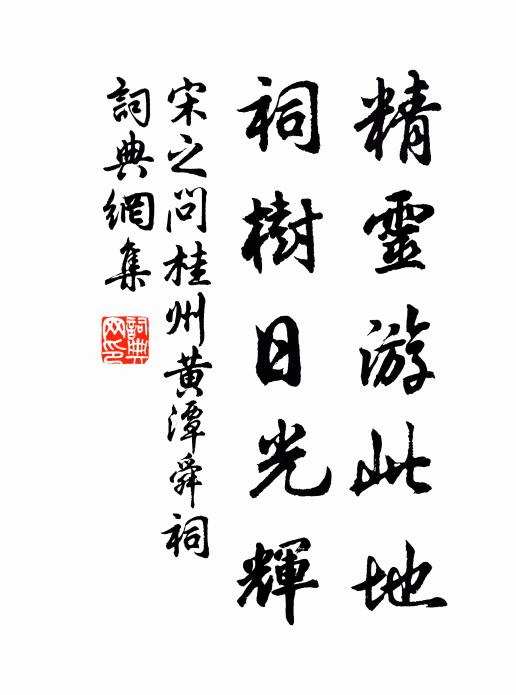 精靈游此地
祠樹日光輝
宋之问桂州黃潭舜祠
詞典網集
詞典
网印